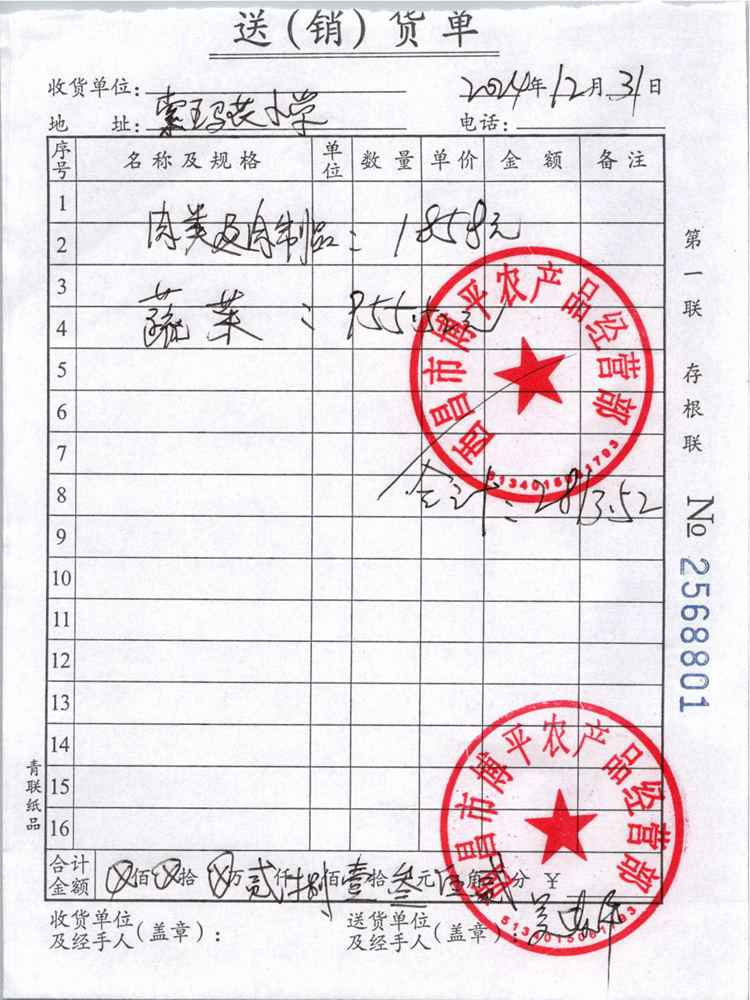 送(销)货单
收货单位: 2024年12月31日
地 址: 索玛花小学 电话:
序号 名称及规格 单位 数量 单价 金额 备注
1
肉类及肉制品: 1858元
2
3
蔬菜: 955.52元
4
5
6
7
合计: 2813.52
8
9
10
11
12
13
14
15
16
西昌市南平农产品经营部
西昌市南平农产品经营部
合计金额 ⊗佰⊗拾⊗万贰仟捌佰壹拾叁元伍角贰分 ¥
收货单位及经手人(盖章): 送货单位及经手人(盖章):
第一联 存根联
No 2568801
青联纸品